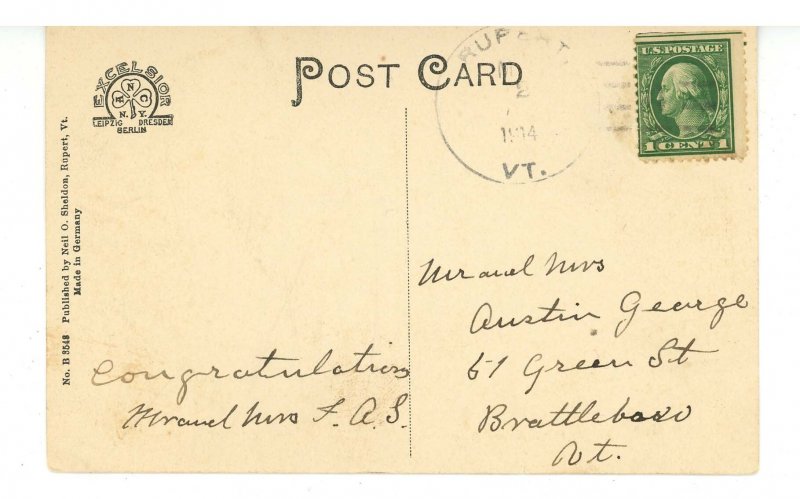 EXCELSIOR
N.Y.
LEIPZIG DRESDEN
BERLIN
POST CARD
RUPERT
2
1914
VT.
U.S. POSTAGE
1 CENT 1
No. B 3548 Published by Neil O. Sheldon, Rupert, Vt.
Made in Germany
Congratulations
Mr and Mrs F. A. S.
Mr and Mrs
Austin George
51 Green St
Brattleboro
Vt.